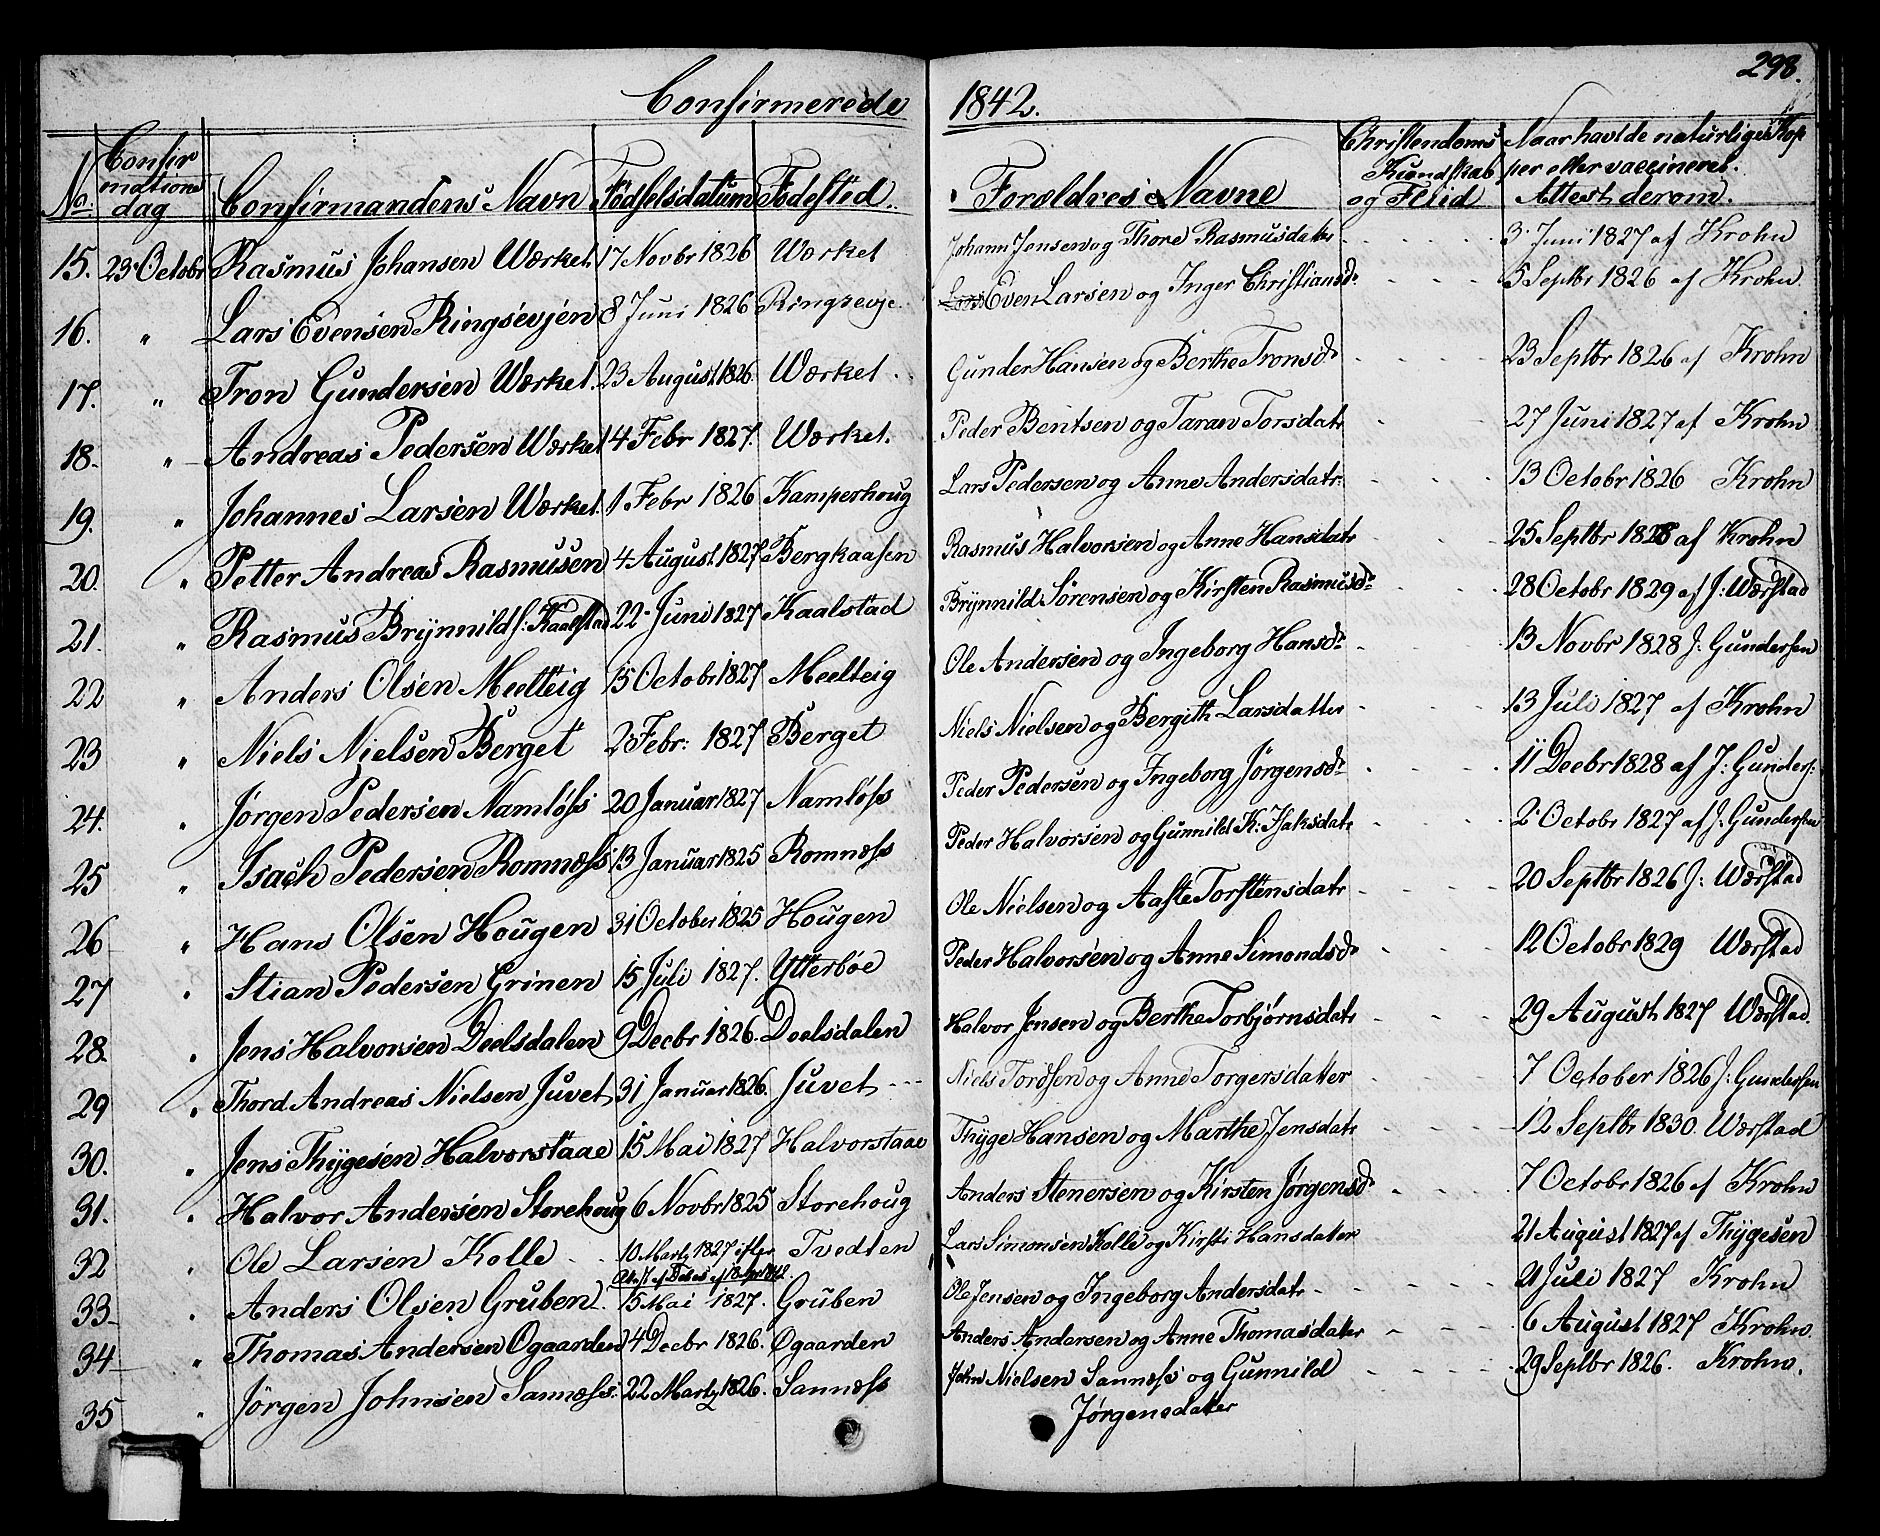 298.
Confirmerede 1842.
No. Confirmations dag Confirmandens Navn Fødselsdatum Fødested. Forældres Navne Christendoms Kundskab og Fliid Naar havt de naturlige Kopper eller vaccineret. Attest derom.
15. 23 Octobr Rasmus Johansen Wærket 17 Novbr 1826 Wærket Johann Jensen og Thore Rasmusdater 3 Juni 1827 af Krohn
16. " Lars Evensen Ringsevjen 8 Juni 1826 Ringsevje. Even Larsen og Inger Christiansdr 5 Septbr 1826 af Krohn
17. " Tron Gundersen Wærket. 23 August 1826. Wærket. Gunder Hansen og Berthe Tronsdr 23 Septbr 1826 af Krohn
18. " Andreas Pedersen Wærket 4 Febr 1827. Wærket. Peder Bentsen og Taran Torsdatr 27 Juni 1827 af Krohn
19. " Johannes Larsen Wærket. 1 Febr 1826 Kamperhoug Lars Pedersen og Anne Andersdatr: 13 Octobr 1826 Krohn
20. " Petter Andreas Rasmusen 4 August 1827 Bergkaasen Rasmus Halvorsen og Anne Hansdatr 25 Septbr 1828 af Krohn
21. " Rasmus Brynnild s: Kaalstad 22 Juni 1827 Kaalstad Brynnild Sörensen og Kirsten Rasmusdr 28 Octobr 1829 af J: Wærstad
22 " Anders Olsen Meelteig 15 Octobr 1827 Meelteig Ole Andersen og Ingeborg Hansdr 13 Novbr 1828 J: Gundersen
23 " Niels Nielsen Berget 2 Febr: 1827 Berget Niels Nielsen og Bergith Larsdatter 13 Juli 1827 af Krohn
24. " Jørgen Pedersen Namløss 20 Januar 1827 Namløss Peder Pedersen og Ingeborg Jørgensdr 11 Decbr 1828 af J: Gunders:
25 " Isach Pedersen Romnæss 13 Januar 1825 Romnæss Peder Halvorsen og Gunnild K: Isaksdatr 2 Octobr 1827 af J: Gundersen
26 " Hans Olsen Hougen 31 October 1825 Hougen Ole Nielsen og Aaste Torstensdatr 20 Septbr 1826 J: Wærstad
27 " Stian Pedersen Grinen 15 Juli 1827. Ytterbøe Peder Halvorsen og Anne Simondsdr 12 Octobr 1829 Wærstad
28. " Jens Halvorsen Deelsdalen 9 Decbr 1826. Deelsdalen Halvor Jensen og Berthe Torbjørnsdatr 29 August 1827 Wærstad.
29 " Thord Andreas Nielsen Juvet 31 Januar 1826. Juvet Niels Tordsen og Anne Torgersdater 7 October 1826 J: Gundersen
30. " Jens Thygesen Halvorstaae 15 Mai 1827 Halvorstaae Thyge Hansen og Marthe Jensdatr 12 Septbr 1830. Wærstad
31. " Halvor Andersen Storehoug 6 Novbr 1825 Storehoug Anders Stenersen og Kirsten Jørgensdr 7 Octobr 1826 af Krohn
32 " Ole Larsen Kolle 10 Martz 1827 ifter Tvedten Lars Simonsen Kolle og Kirsti Hansdater 21 August 1827 af Thygesen
33 " Anders Olsen Gruben 15 Mai 1827. Gruben Ole Jensen og Ingeborg Andersdatr 21 Juli 1827 Krohn
34 " Thomas Andersen Ogaarden 24 Decbr 1826. Ogaarden Anders Andersen og Anne Thomasdater 6 August 1827 Krohn.
35 " Jørgen Johnsen Sannæss: 22 Martz 1826. Sannæss John Nielsen Sannæss og Gunnild 29 Septbr 1826. Krohn.
Jørgensdater